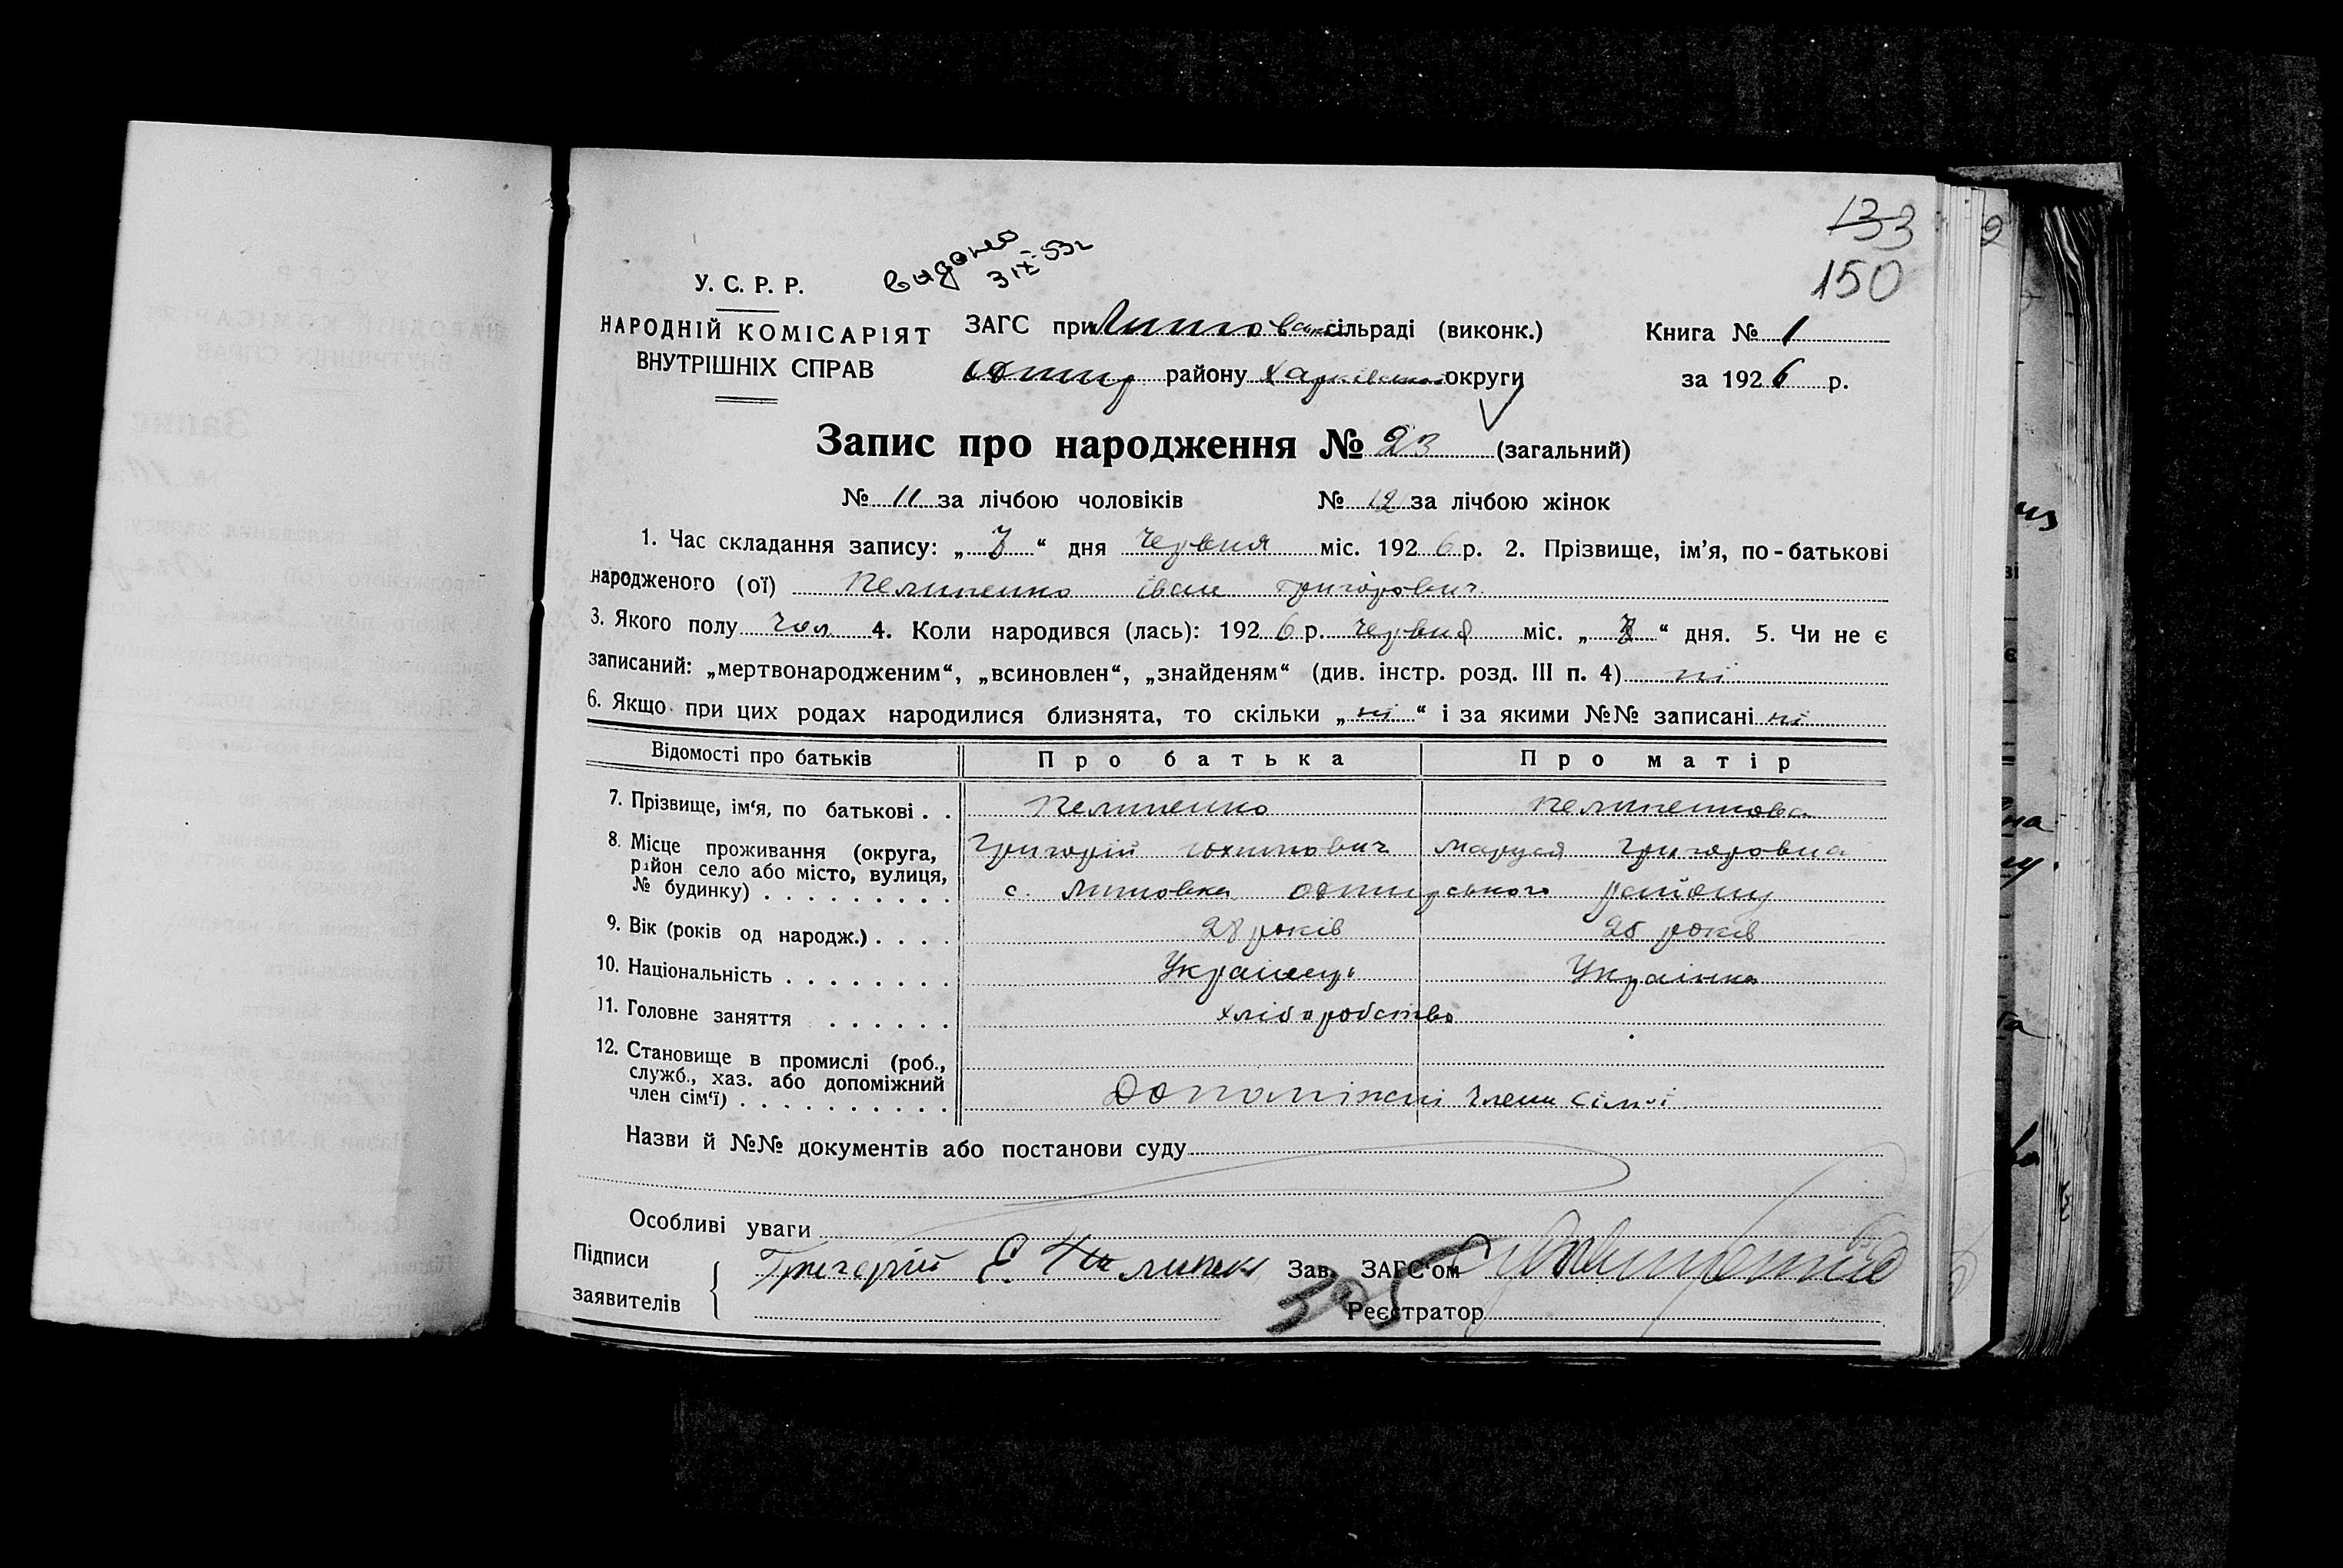 133
150
видано
3 ІХ-53г
У. С. Р. Р.
НАРОДНІЙ КОМІСАРІЯТ
ВНУТРІШНІХ СПРАВ
ЗАГС при сільраді (виконк.)
району Харківської округи
Книга № 1
за 1926 р.
Запис про народження № 23 (загальний)
№ 11 за лічбою чоловіків № 12 за лічбою жінок
1. Час складання запису: „ 7 “ дня Червня міс. 1926 р. 2. Прізвище, ім’я, по-батькові
народженого (ої) Пелипенко іван григорович
3. Якого полу чол. 4. Коли народився (лась): 1926 р. Червня міс. „ “ дня. 5. Чи не є
записаний: „мертвонародженим“, „всиновлен“, „знайденям“ (див. інстр. розд. III п. 4) ні
6. Якщо при цих родах народилися близнята, то скільки „ ні “ і за якими №№ записані ні
Відомості про батьків Про батька Про матір
7. Прізвище, ім‘я, по батькові . . Пелипенко Пелипенкова
8. Місце проживання (округа, Григорій юхимович Маруся Григоровна
район село або місто, вулиця,
№ будинку) . . . . . . . . . с. Литовка району
9. Вік (років од народж.) . . . . 28 років 25 років
10. Національність . . . . . . . . Українець Українка
11. Головне заняття . . . . . . хліборобство
12. Становище в промислі (роб.,
служб., хаз. або допоміжний
член сім‘ї) . . . . . . . . . . допоміжні члени сім'ї
Назви й №№ документів або постанови суду
Особливі уваги
Підписи
заявителів
Григорій Є.
Зав. ЗАГС‘ом
395
Реєстратор